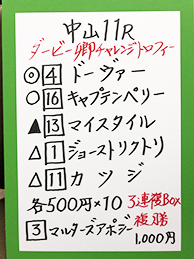 中山11R
ダービー卿チャレンジトロフィー
◎4 ドーヴァー
○16 キャプテンペリー
▲13 マイスタイル
△1 ジョーストリクトリ
△11 カツジ
各500円×10 3連複Box
複勝
3 マルターズアポジー 1,000円